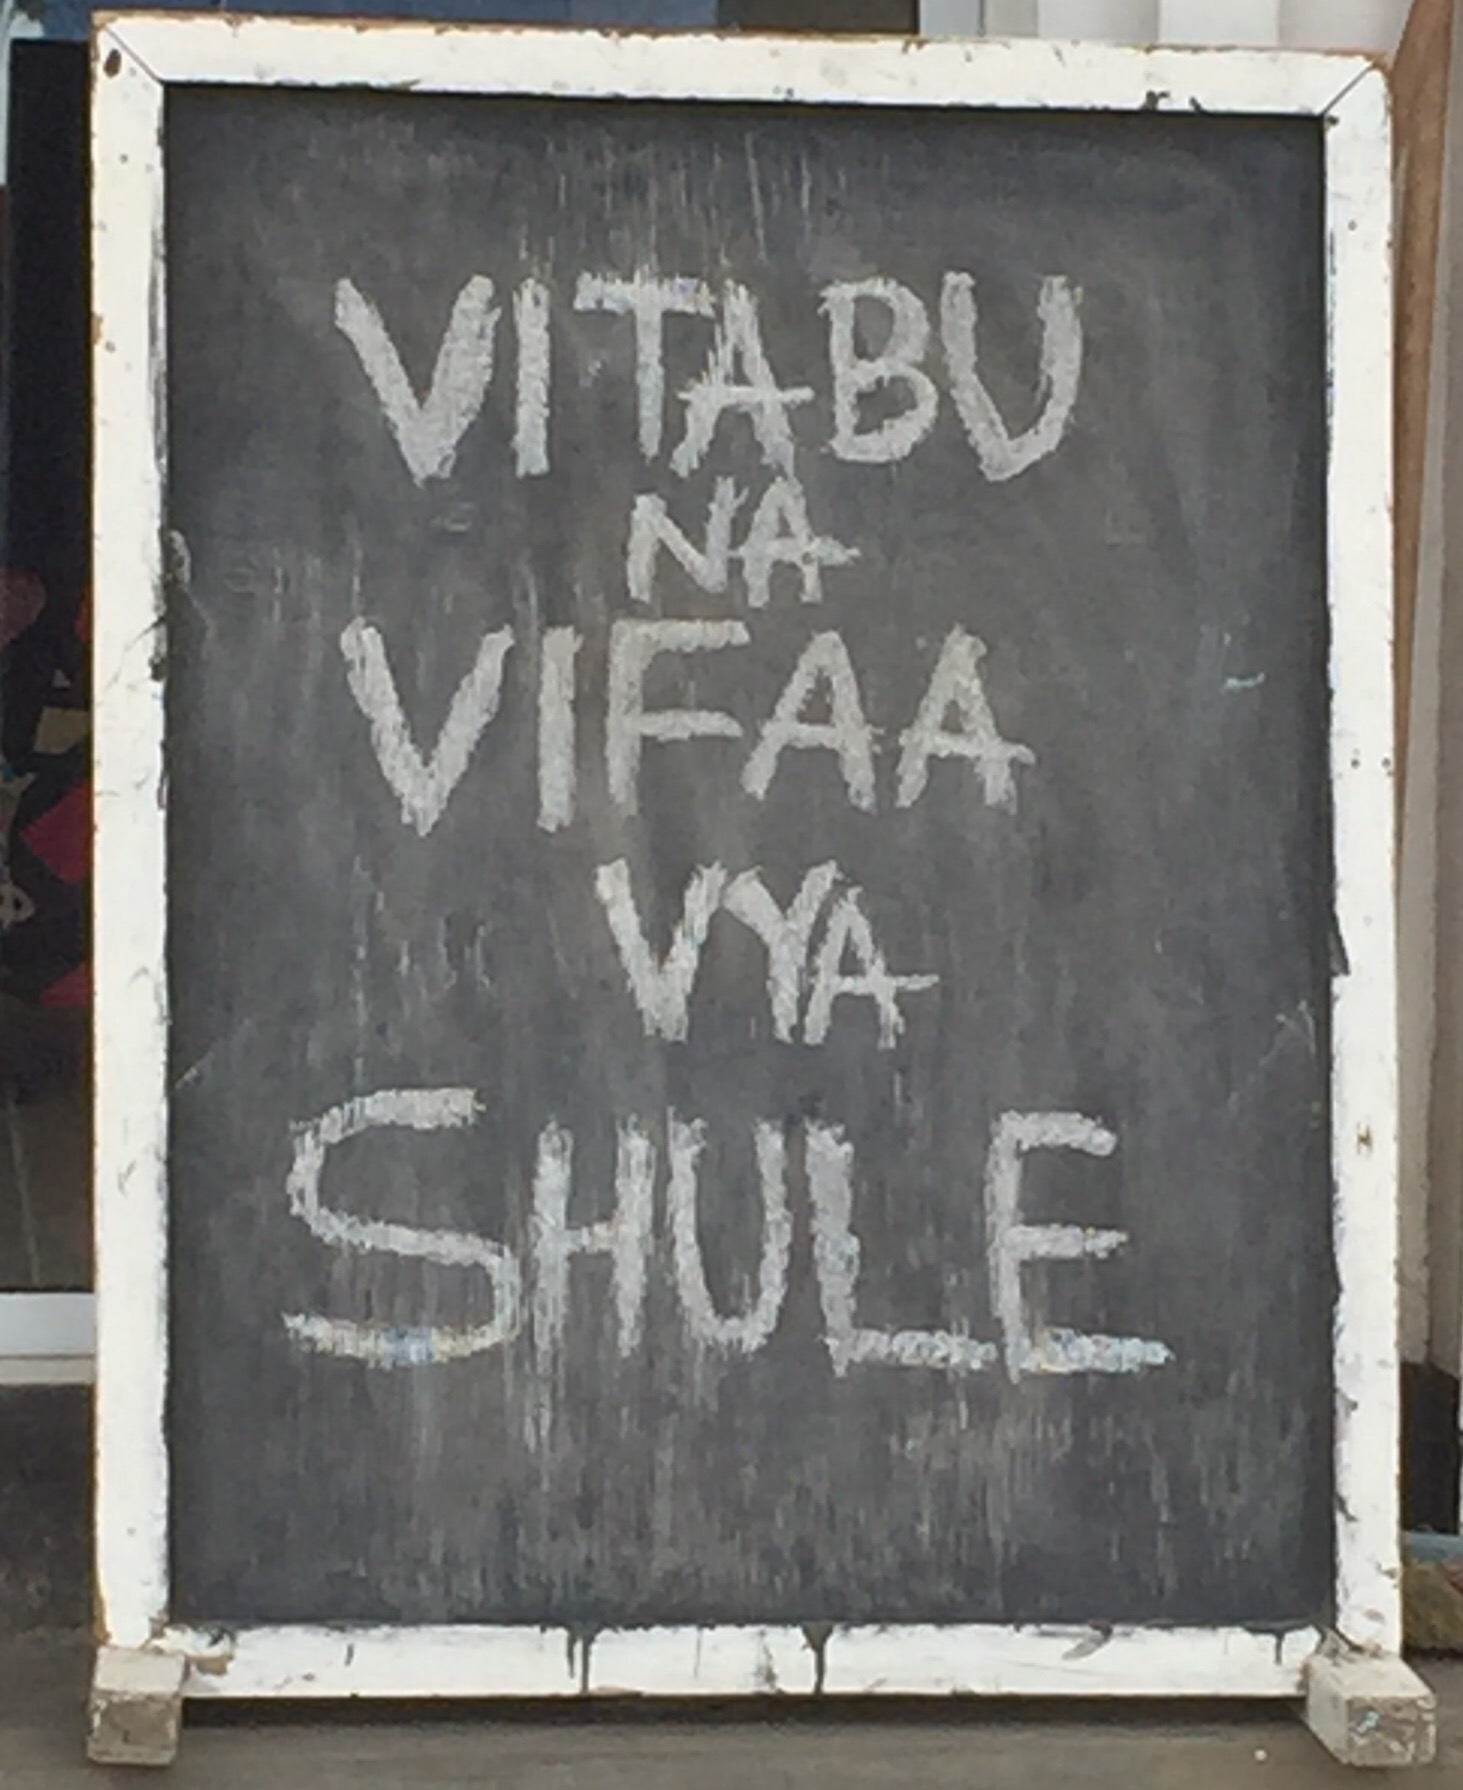 VITABU
NA
VIFAA
VYA
SHULE